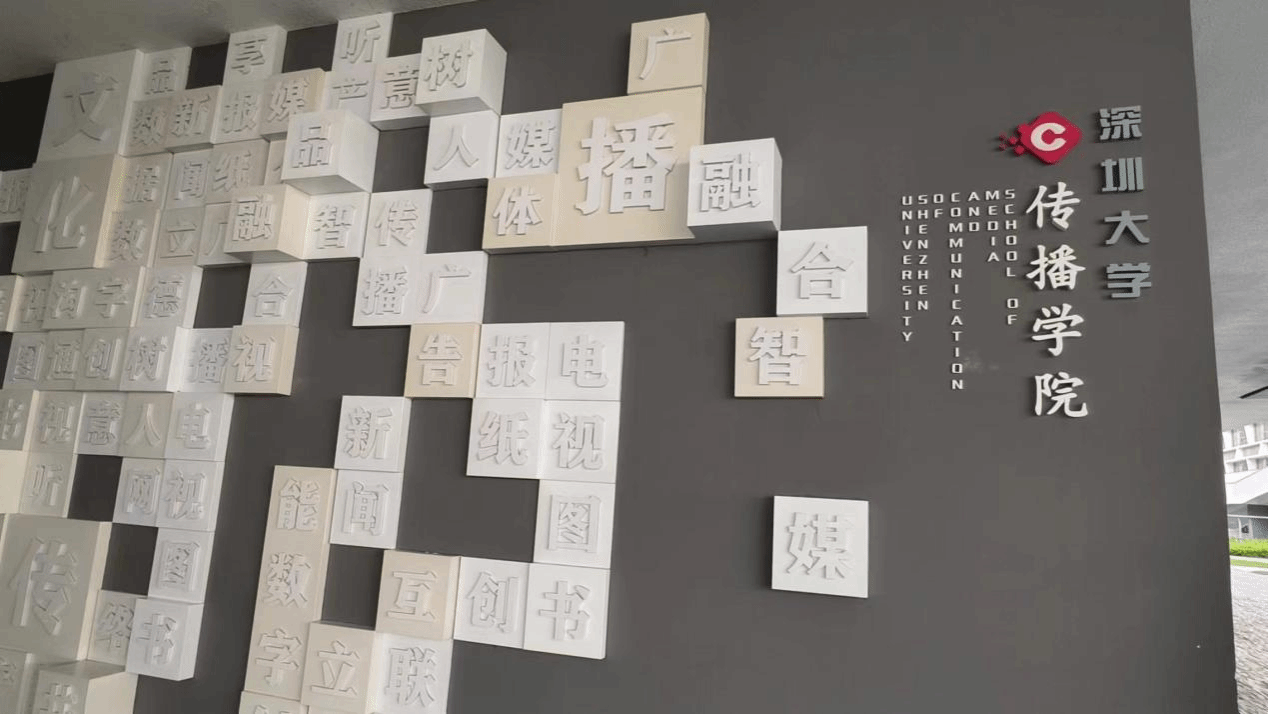 深圳大学
传播学院
C
SCHOOL OF
MEDIA
AND
COMMUNICATION
OF
SHENZHEN
UNIVERSITY
广
播
融
合
智
媒
媒
体
树
人
听
产
意
享
报
纸
品
新
闻
立
媒
品
数
据
数
文
化
融
合
视
智
传
播
广
告
报
纸
电
视
图
书
创
互
联
新
闻
能
数
字
立
字
德
树
人
播
创
意
通
图
视
听
电
视
图
书
网
络
传
书